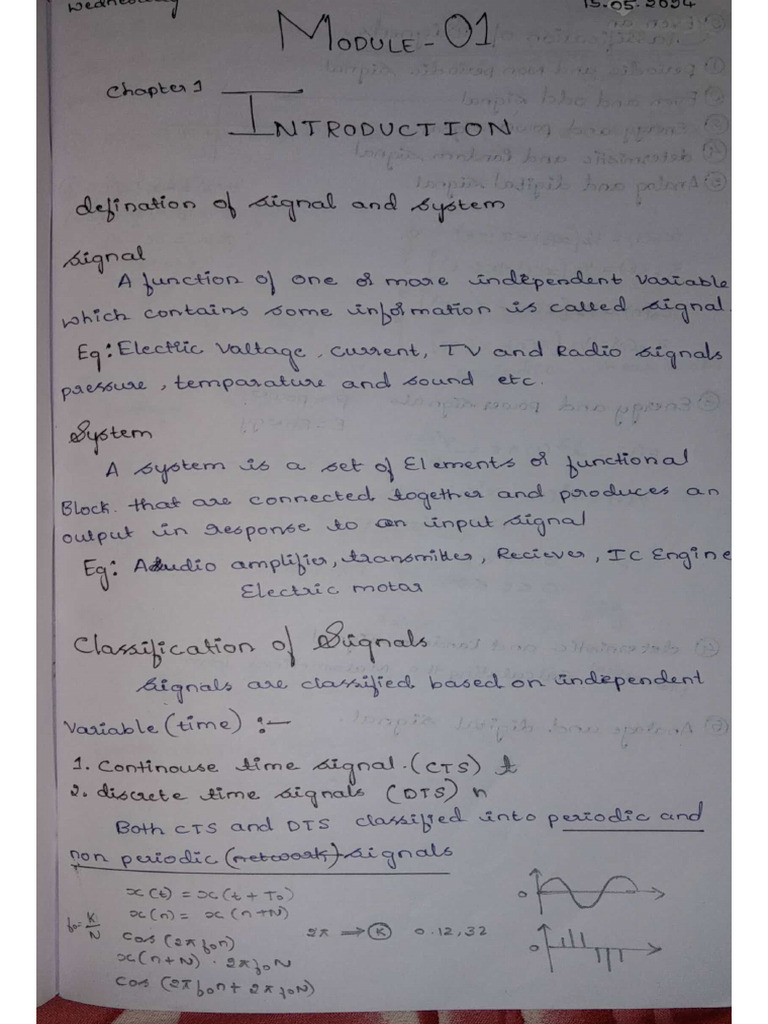 Wednesday 15.05.2024
MODULE-01
Chapter 1
INTRODUCTION
defination of signal and system
signal
A function of one or more independent variable
which contains some information is called signal.
Eg: Electric voltage, current, TV and Radio signals
pressure, temparature and sound etc.
System
A system is a set of Elements or functional
Block. that are connected together and produces an
output in response to an input signal
Eg: Audio amplifier, transmitter, Reciever, IC Engine
Electric motar
Classification of Signals
signals are classified based on independent
variable (time) :-
1. Continouse time signal. (CTS) t
2. discrete time signals (DTS) n
Both CTS and DTS classified into periodic and
non periodic (network) signals
x(t) = x(t + T₀)
x(n) = x(n+N)
f₀ = K/N
cos (2π f₀n) 2π → K 0.12,32
x(n+N) . 2π f₀N
cos (2π f₀n + 2π f₀N)
0
0